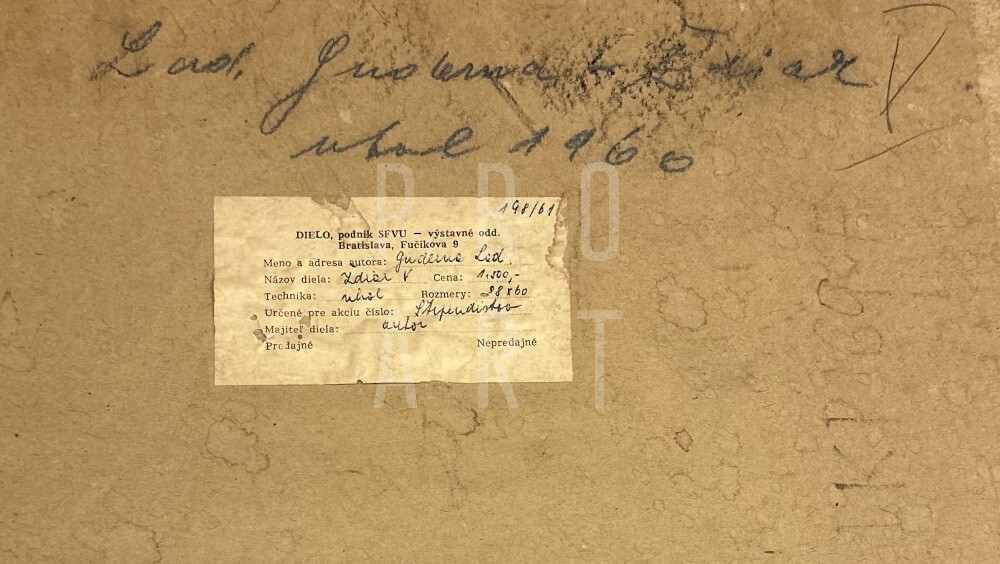 Lad. Guderna - Ždiar V
uhol 1960
198/61
DIELO, podnik SFVU — výstavné odd.
Bratislava, Fučíkova 9
Meno a adresa autora: Guderna Lad.
Názov diela: Ždiar V Cena: 1.500,-
Technika: uhol Rozmery: 98x60
Určené pre akciu číslo: Štipendistov
Majiteľ diela: autor
Predajné Nepredajné
PRO
ART